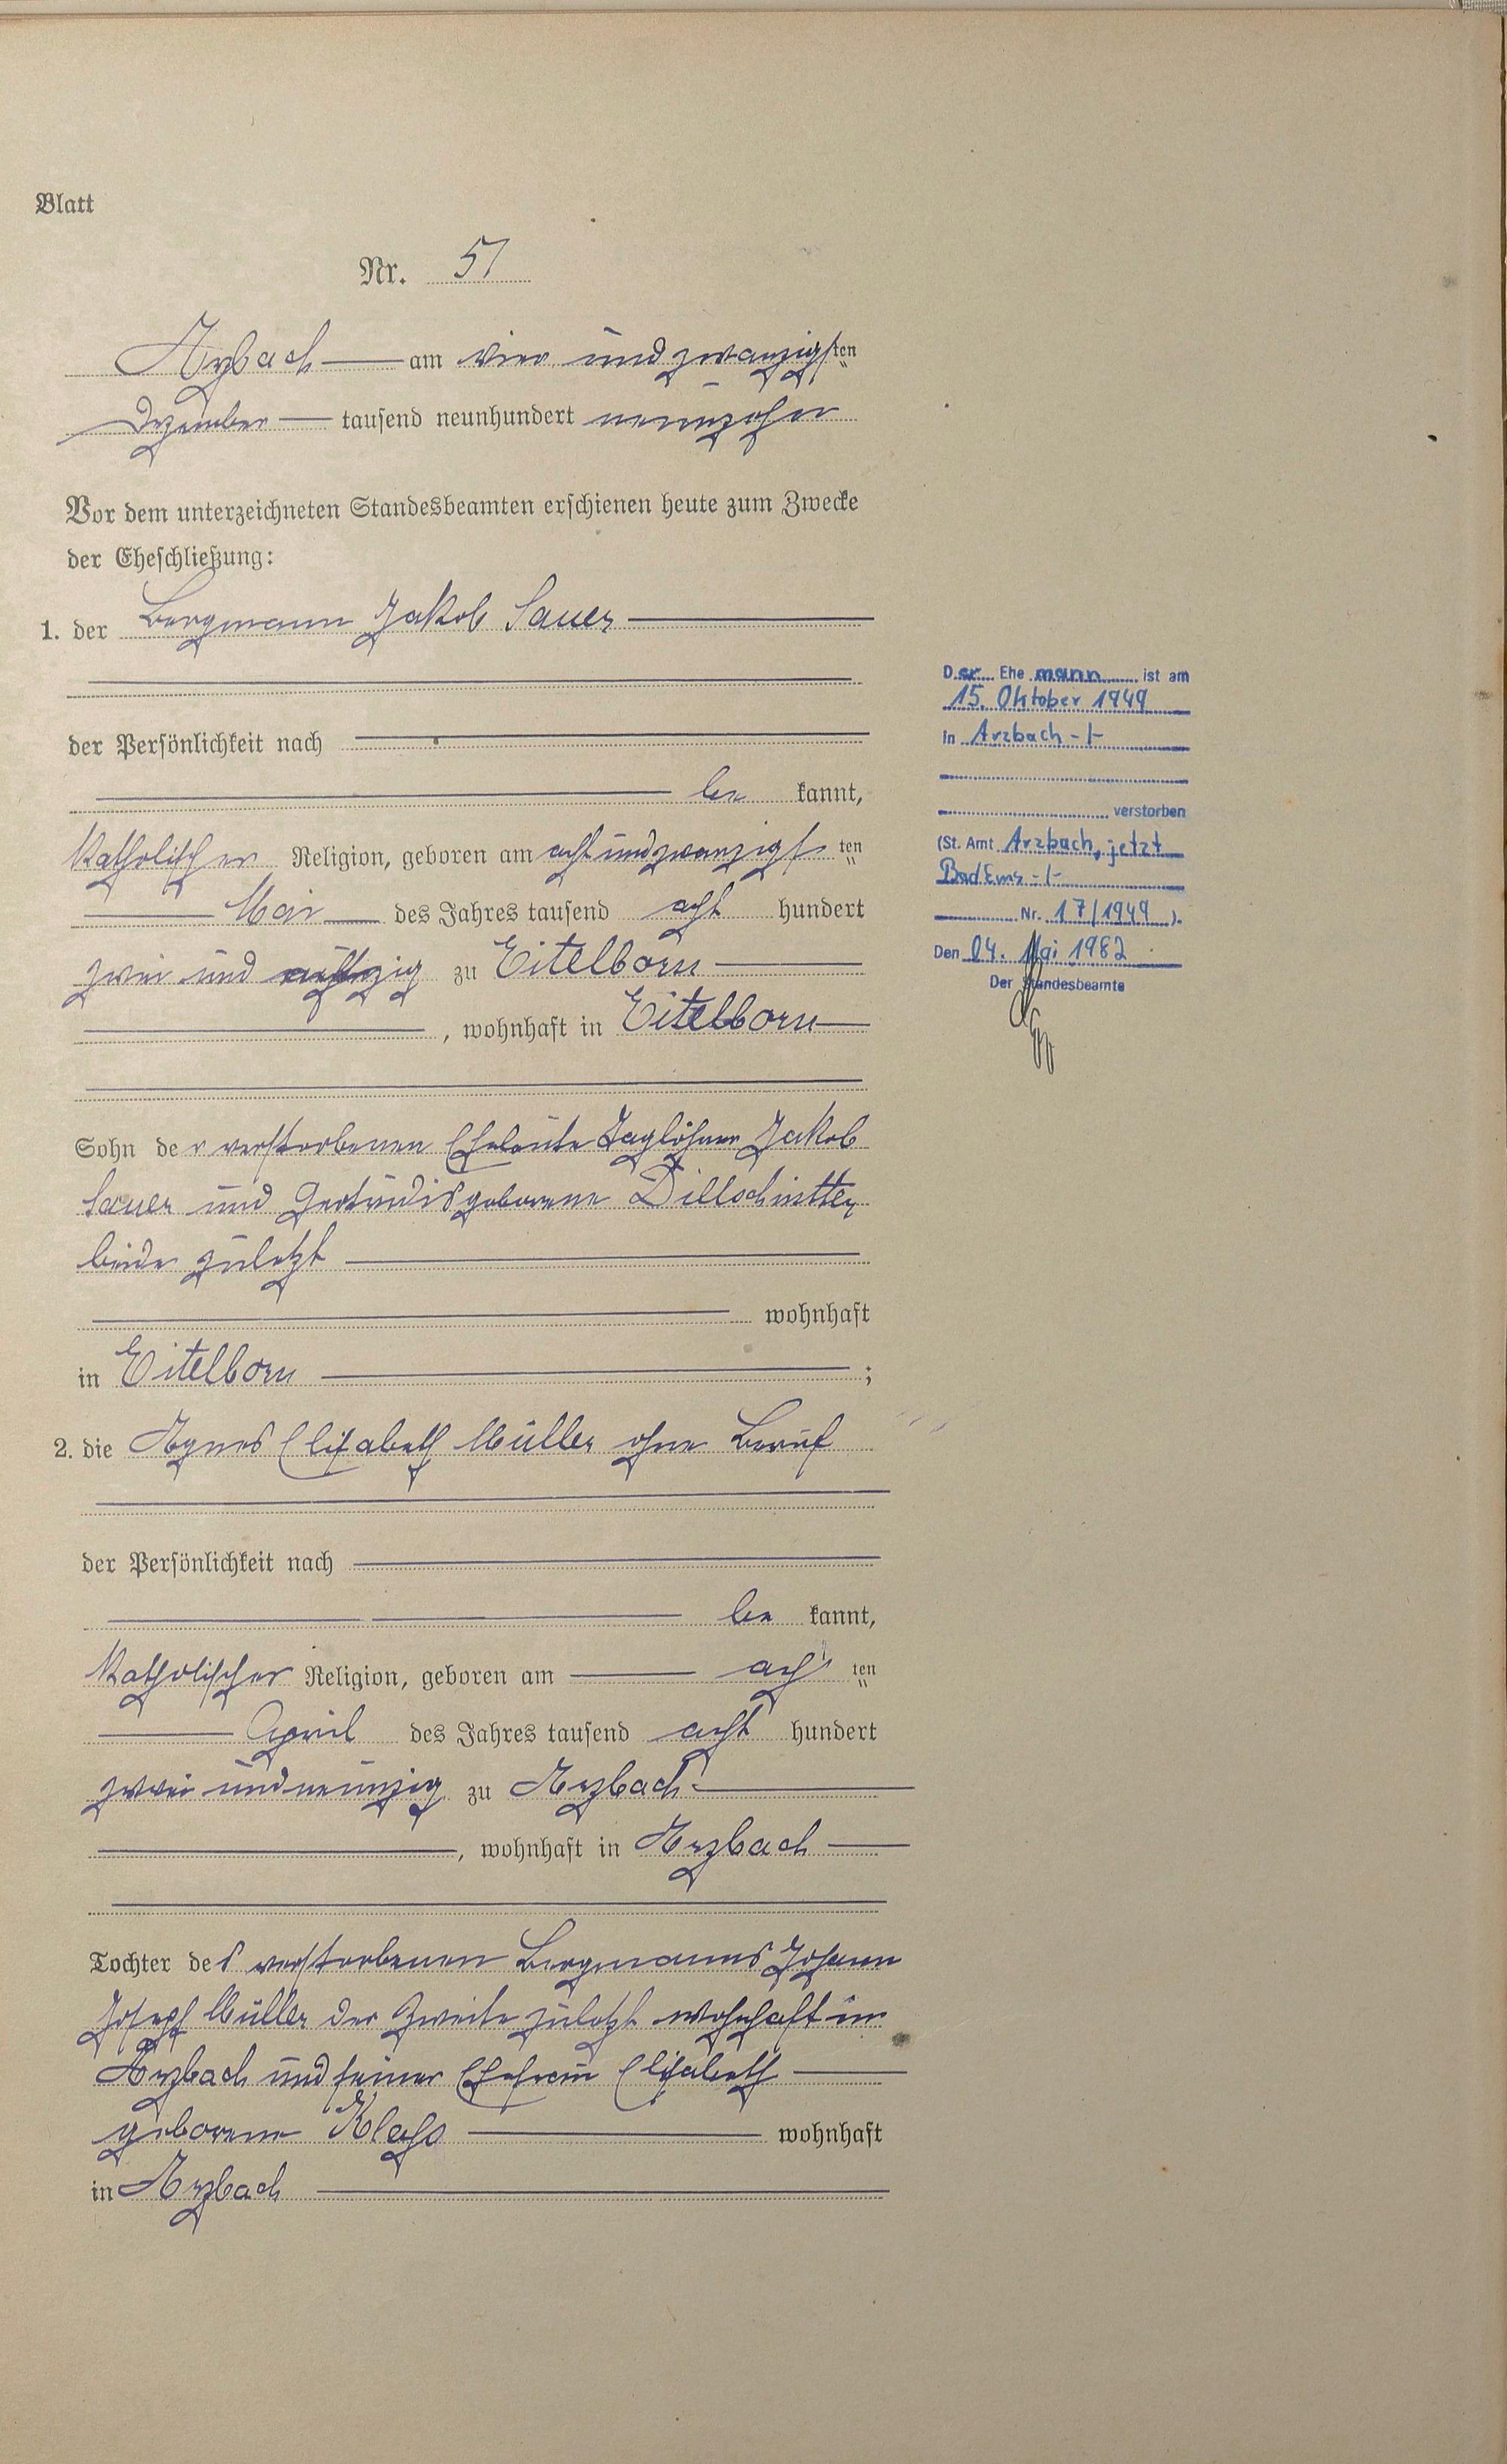 Blatt
Nr. 51
Arzbach am vier und zwanzigsten
Dezember tausend neunhundert neunzehn
Vor dem unterzeichneten Standesbeamten erschienen heute zum Zwecke
der Eheschließung:
1. der Bergmann Jakob Sauer
der Persönlichkeit nach
be kannt,
katholischer Religion, geboren am acht und zwanzigsten
Mai des Jahres tausend acht hundert
zwei und achtzig zu Eitelborn
, wohnhaft in Eitelborn
Sohn der verstorbenen Eheleute Taglöhner Jakob
Sauer und Gertrudis geborene Dillschnitter
beide zuletzt
wohnhaft
in Eitelborn ;
2. die Agnes Elisabeth Müller ohne Beruf
der Persönlichkeit nach
be kannt,
katholischer Religion, geboren am achten
April des Jahres tausend acht hundert
zwei und neunzig zu Arzbach
, wohnhaft in Arzbach
Tochter des verstorbenen Bergmanns Johann
Joseph Müller der Zweite zuletzt wohnhaft in
Arzbach und seiner Ehefrau Elisabeth
geborene
wohnhaft
in Arzbach
Der Ehe mann ist am
15. Oktober 1949
in Arzbach -/-
verstorben
(St. Amt Arzbach, jetzt
Bad Ems -/-
Nr. 17/1949 ).
Den 04. Mai 1982
Der Standesbeamte